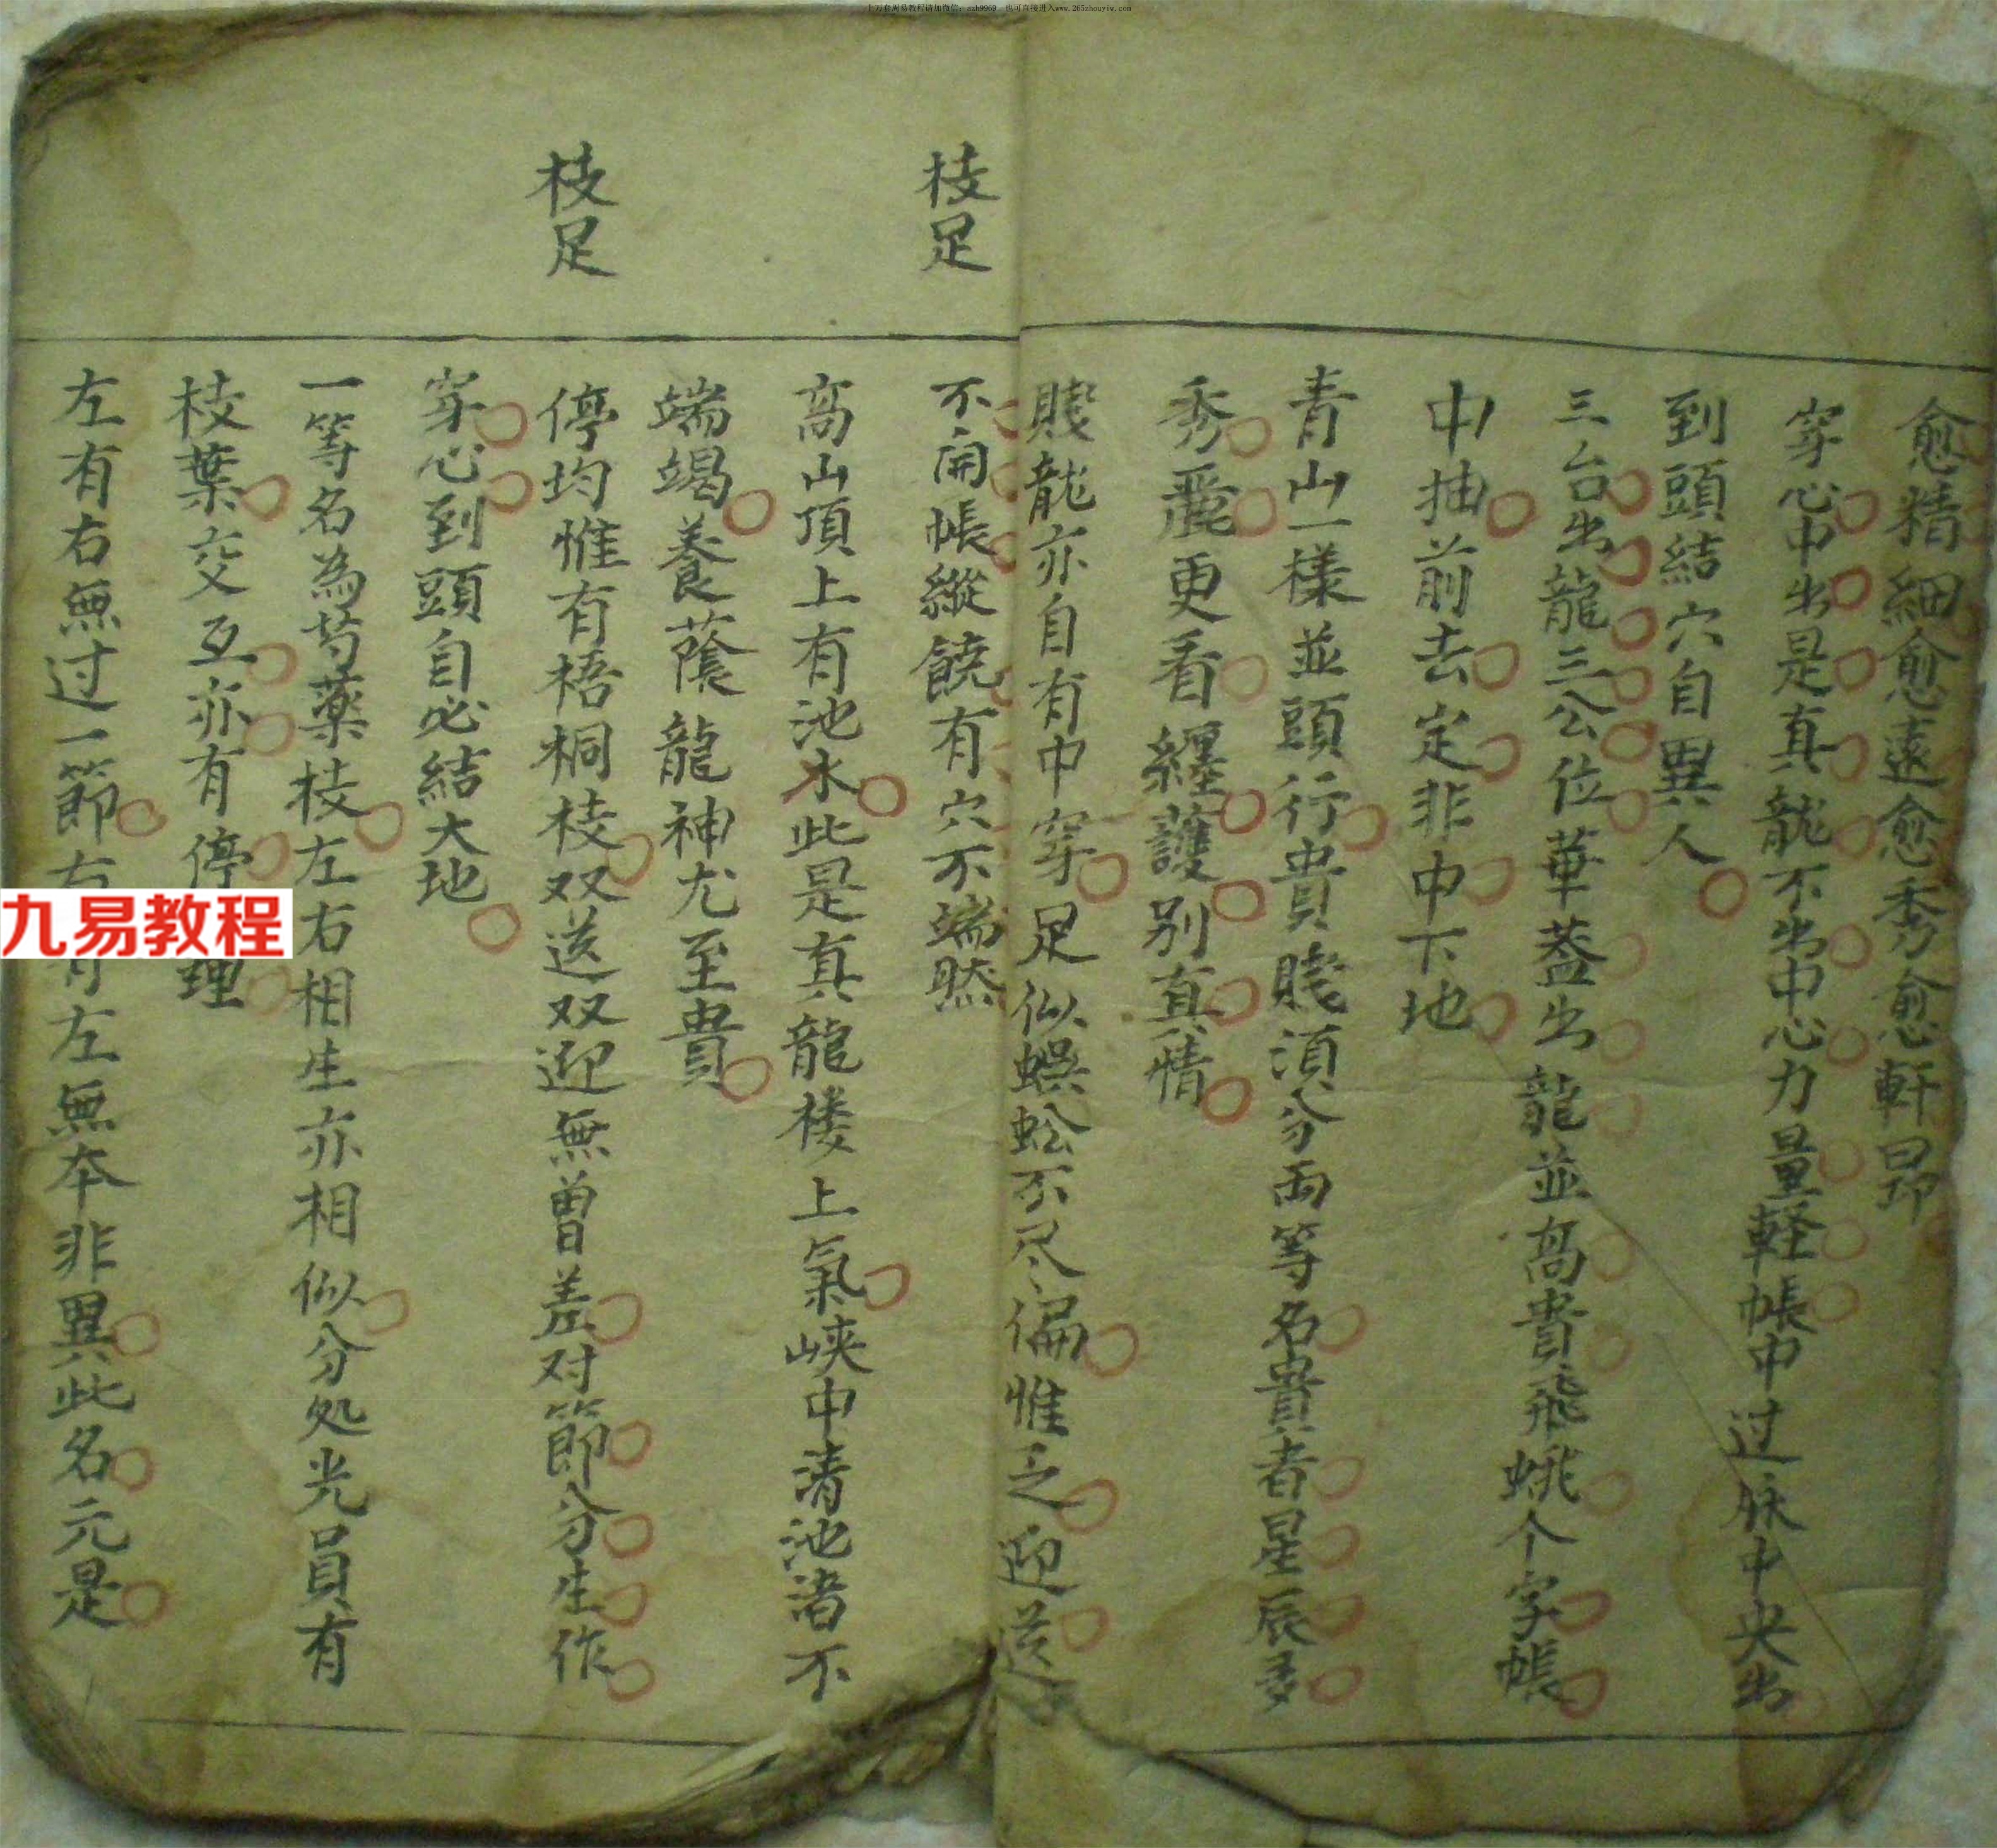 上万套周易教程请加微信：szh9969，也可直接进入www.265zhouyiw.com
愈精細愈遠愈秀愈軒昂
穿心中出是真龍不出中心力量軽帳中过脉中央出
到頭結穴自異人
三台出龍三公位華蓋出龍並高貴飛蛾个字帳
中抽前去定非中下地
青山一樣並頭行貴賤須分両等名貴者星辰多
秀麗更看纒護别真情
賤龍亦自有中穿足似蜈蚣不尽偏惟乏迎送
枝足
不開帳縱饒有穴不端然
高山頂上有池水此是真龍楼上氣峡中清池渚不
端竭養蔭龍神尤至貴
枝足
停均惟有梧桐枝双送双迎無曽差对節分生作
穿心到頭自必結大地
一等名為芍薬枝左右相生亦相似分処光員有
枝葉交互亦有停理
左有右無过一節右有左無本非異此名元是
九易教程